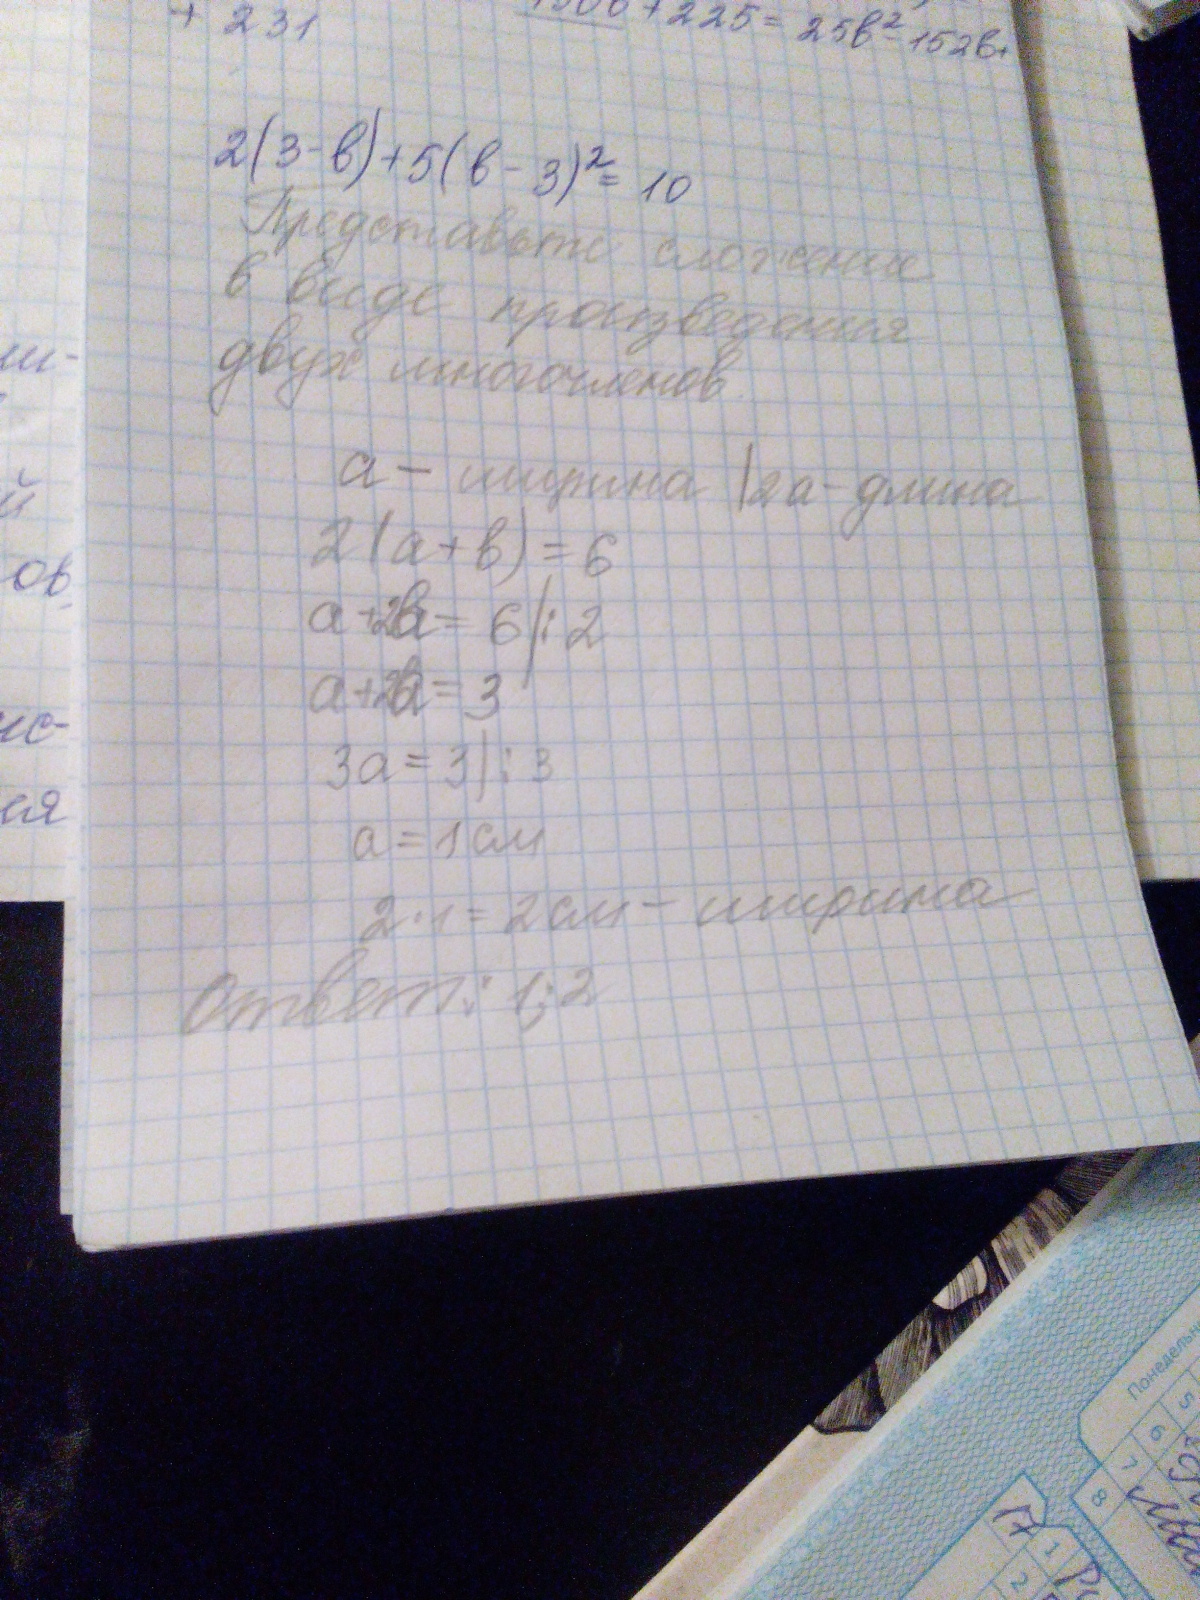 + 231
+ 225 = 25в² - 152в+
2(3-в)+5(в-3)²= 10
Представьте сложение
в виде произведения
двух многочленов.
а - ширина |2а-длина
2(а+в)=6
а+2а= 6|:2
а+2а=3
3а=3|:3
а=1см
2·1=2см- ширина
Ответ: 1;2
ши-
й
ов,
ис-
ия
Понедельн
5
6
7
8
17
1
2